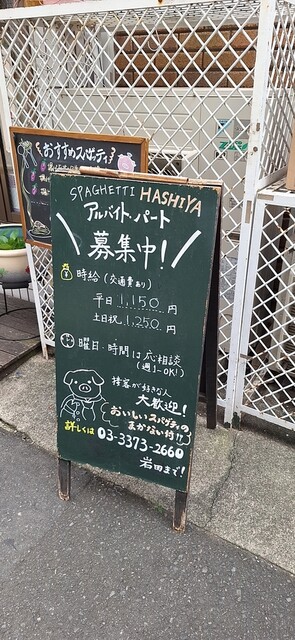 おすすめスパゲティ
SPAGHETTI HASHIYA
アルバイト・パート
募集中!
時給(交通費あり)
平日 1,150 円
土日祝 1,250 円
曜日・時間は応相談
(週1~OK!)
接客が好きな人
大歓迎!
おいしいスパゲティの
まかない付!!
詳しくは 03-3373-2660
岩田まで!